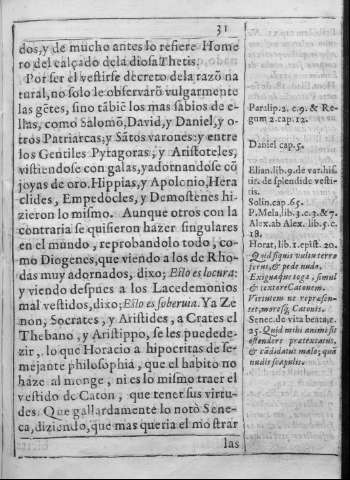 31
dos,y de mucho antes lo refiere Home
ro del calçado dela diosa Thetis.
Por ser el vestirse decreto dela razō na
tural,no solo le obseruarō vulgarmente
las gētes, sino tābiē los mas sabios de e-
llas, como Salomō,Dauid,y Daniel,y o-
tros Patriarcas;y Sātos varones:y entre
los Gentiles Pytagoras, y Aristoteles,
vistiendose con galas,yadornandose cō
joyas de oro.Hippias,y Apolonio,Hera
clides, Empedocles, y Demostenes hi-
zieron lo mismo. Aunque otros con la
contraria se quisieron hazer singulares
en el mundo, reprobandolo todo, co-
mo Diogenes,que viendo a los de Rho-
das muy adornados, dixo; Esto es locura:
y viendo despues a los Lacedemonios
mal vestidos,dixo;Esto es soberuia. Ya Ze
non, Socrates, y Aristides, a Crates el
Thebano, y Aristippo, se les puedede-
zir, lo que Horacio a hipocritas de se-
mejante philosophia, que el habito no
haze al monge, ni es lo mismo traer el
vestido de Caton, que tener sus virtu-
des. Que gallardamente lo notò Sene-
ca,diziendo,que mas queria el mostrar
las
Paralip.2. c.9. & Re-
gum 2.cap.12.
Daniel cap.5.
Elian.lib.9.de var.his-
tir. de splendide vesti-
tis.
Solin.cap.65.
P.Mela,lib.3.c.3.&7.
Alex.ab Alex. lib.5.c.
18.
Horat,lib.1.epist.20.
Quid siquis vultu torvo
ferus,& pede nudo.
Exiguæque toga, simul
& textore Catonem.
Virtutem ne repræsen-
tet,moresq; Catonis.
Senec.de vita beata,c.
25.Quid mihi animi sit
ostendere prætextatus,
& cādidatus malo; quā
nudis scapulis.